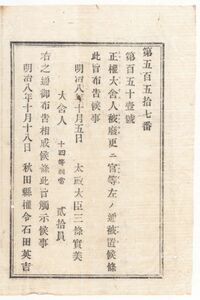 第五百五拾七番
第百五十壹號
正權大舍人被廢更ニ官等左ノ通被置候條
此旨布告候事
明治八年十月五日
太政大臣三條實美
大舍人
十四等相當
貳拾員
右之通御布告相成候條此旨觸示候事
明治八年十月十八日
秋田縣權令石田英吉